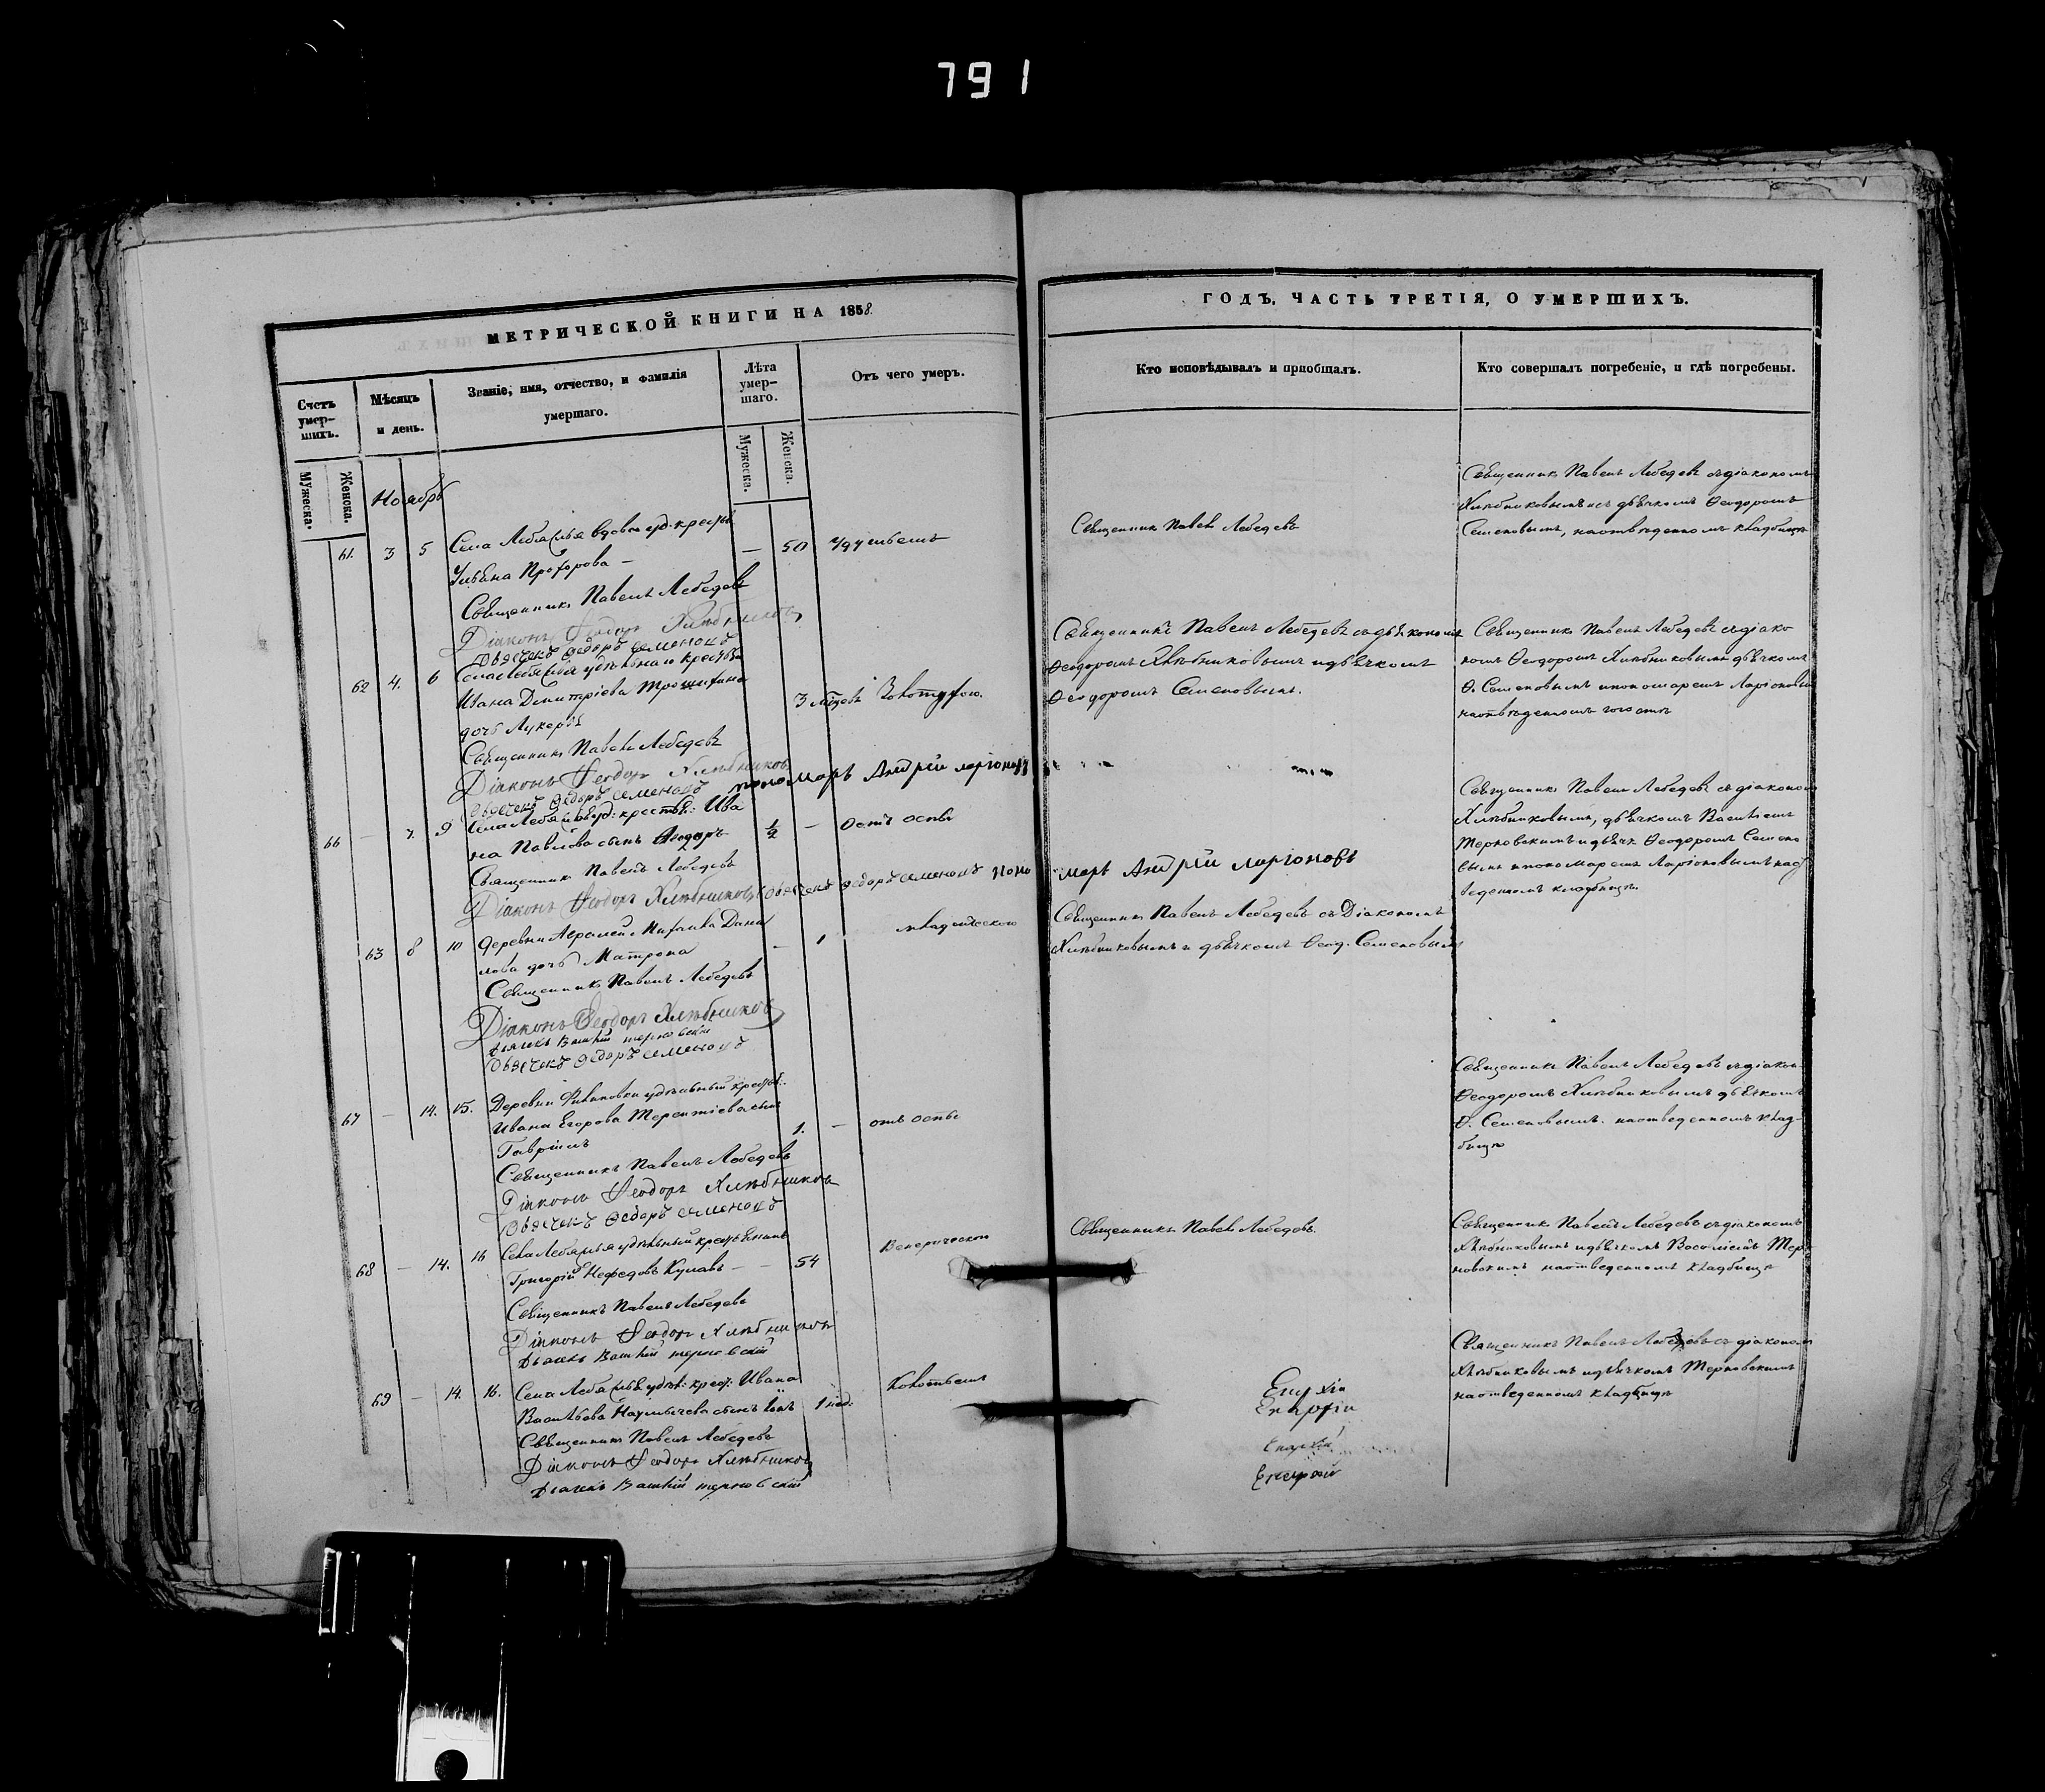 791
МЕТРИЧЕСКОЙ КНИГИ НА 1858
ГОДЪ, ЧАСТЬ ТРЕТІЯ, О УМЕРШИХЪ.
Счетъ умер-
шихъ.
Мѣсяцъ
и день.
Званіе, имя, отчество, и фамилія
умершаго.
Лѣта
умер-
шаго.
Отъ чего умеръ.
Кто исповѣдывалъ и пріобщалъ.
Кто совершалъ погребеніе, и гдѣ погребены.
Мужеска.
Женска.
Мужеска.
Женска.
Ноябрь
61. 3 5 Села Лебяжья вдова уд. крест.
Ульяна Прохорова — — 50
Священникъ Павелъ Лебедевъ
Діаконъ Феодоръ Хлѣбниковъ
Дьячекъ Федоръ Семеновъ
Священникъ Павелъ Лебедевъ
Священникъ Павелъ Лебедевъ съ діакономъ
Хлѣбниковымъ и съ дьячкомъ Ѳеодоромъ
Семеновымъ, на отведенномъ кладбищѣ
62 4. 6
Ивана Димитріева
дочь Лукерья 3
Священникъ Павелъ Лебедевъ
Діаконъ Феодоръ Хлѣбниковъ
Дьячекъ Федоръ Семеновъ пономарь Андрей Ларіоновъ
Священникъ Павелъ Лебедевъ съ діакономъ
Ѳеодоромъ Хлѣбниковымъ и дьячкомъ
Ѳеодоромъ Семеновымъ.
Священникъ Павелъ Лебедевъ съ діако
номъ Ѳеодоромъ Хлѣбниковымъ дьячкомъ
Ѳ. Семеновымъ и пономаремъ Ларіоновымъ
на отведенномъ
66 — 7. 9 Села Лебяжья уд: крестьян: Ива
на Павлова сынъ Ѳеодоръ ½ — отъ оспы
Священникъ Павелъ Лебедевъ
Діаконъ Феодоръ Хлѣбниковъ Дьячекъ Федоръ Семеновъ поно
марь Андрей Ларіоновъ
Священникъ Павелъ Лебедевъ съ діакономъ
Хлѣбниковымъ, дьячкомъ Василіемъ
Терновскимъ и дьячк. Ѳеодоромъ Семено
вымъ и пономаремъ Ларіоновымъ на от
веденномъ кладбищѣ.
63 8 10 Деревни Михаила Дани
лова дочь Матрона — 1
Священникъ Павелъ Лебедевъ
Діаконъ Феодоръ Хлѣбниковъ
Дьячекъ Василій Терновскій
Дьячекъ Федоръ Семеновъ
Священникъ Павелъ Лебедевъ съ Діакономъ
Хлѣбниковымъ и дьячкомъ Ѳеод. Семеновымъ
67 — 14. 15. Деревни Филиповки удѣльный крестьян.
Ивана Егорова Терентіева сынъ
Гавріилъ 1. — отъ оспы
Священникъ Павелъ Лебедевъ
Діаконъ Феодоръ Хлѣбниковъ
Дьячекъ Федоръ Семеновъ
Священникъ Павелъ Лебедевъ съ діакон.
Ѳеодоромъ Хлѣбниковымъ дьячкомъ
Ѳ. Семеновымъ. на отведенномъ клад-
бищѣ
68 — 14. 16 Села Лебяжья удѣльный крестьянинъ
Григорій Нефедовъ — — 54 Венерической
Священникъ Павелъ Лебедевъ
Діаконъ Феодоръ Хлѣбниковъ
Дьячекъ Василій Терновскій
Священникъ Павелъ Лебедевъ.
Священникъ Павелъ Лебедевъ съ діакономъ
Хлѣбниковымъ и дьячкомъ Василіемъ Тер
новскимъ на отведенномъ кладбищѣ
69 — 14. 16. Села Лебяжья удѣл: крест: Ивана
Васильева Наумычева сынъ 1 нед:
Священникъ Павелъ Лебедевъ
Діаконъ Феодоръ Хлѣбниковъ
Дьячекъ Василій Терновскій
Священникъ Павелъ Лебедевъ съ діакономъ
Хлѣбниковымъ и дьячкомъ Терновскимъ
на отведенномъ кладбищѣ